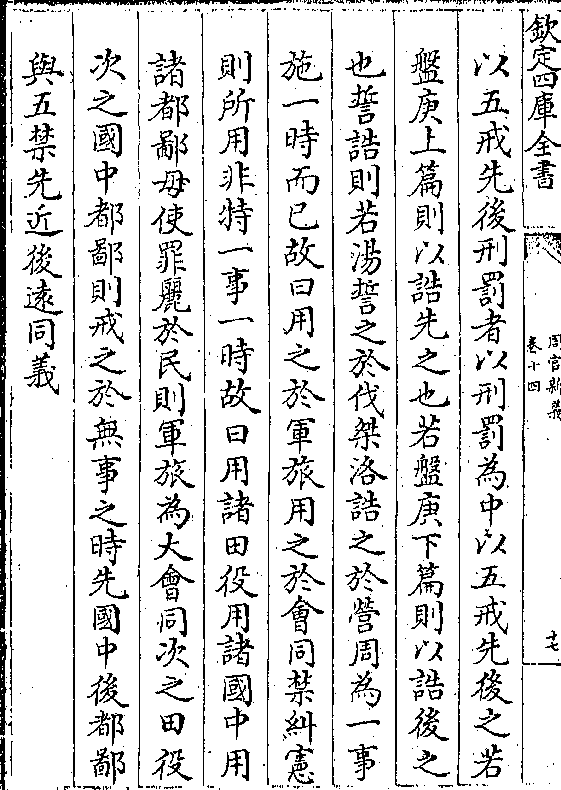 欽定四庫全書
周官新義
卷十四
十七
以五戒先後刑罰者以刑罰為中以五戒先後之若
盤庚上篇則以誥先之也若盤庚下篇則以誥後之
也誓誥則若湯誓之於伐桀洛誥之於營周為一事
施一時而已故曰用之於軍旅用之於會同禁糾憲
則所用非特一事一時故曰用諸田役用諸國中用
諸都鄙毋使罪麗於民則軍旅為大會同次之田役
次之國中都鄙則戒之於無事之時先國中後都鄙
與五禁先近後遠同義